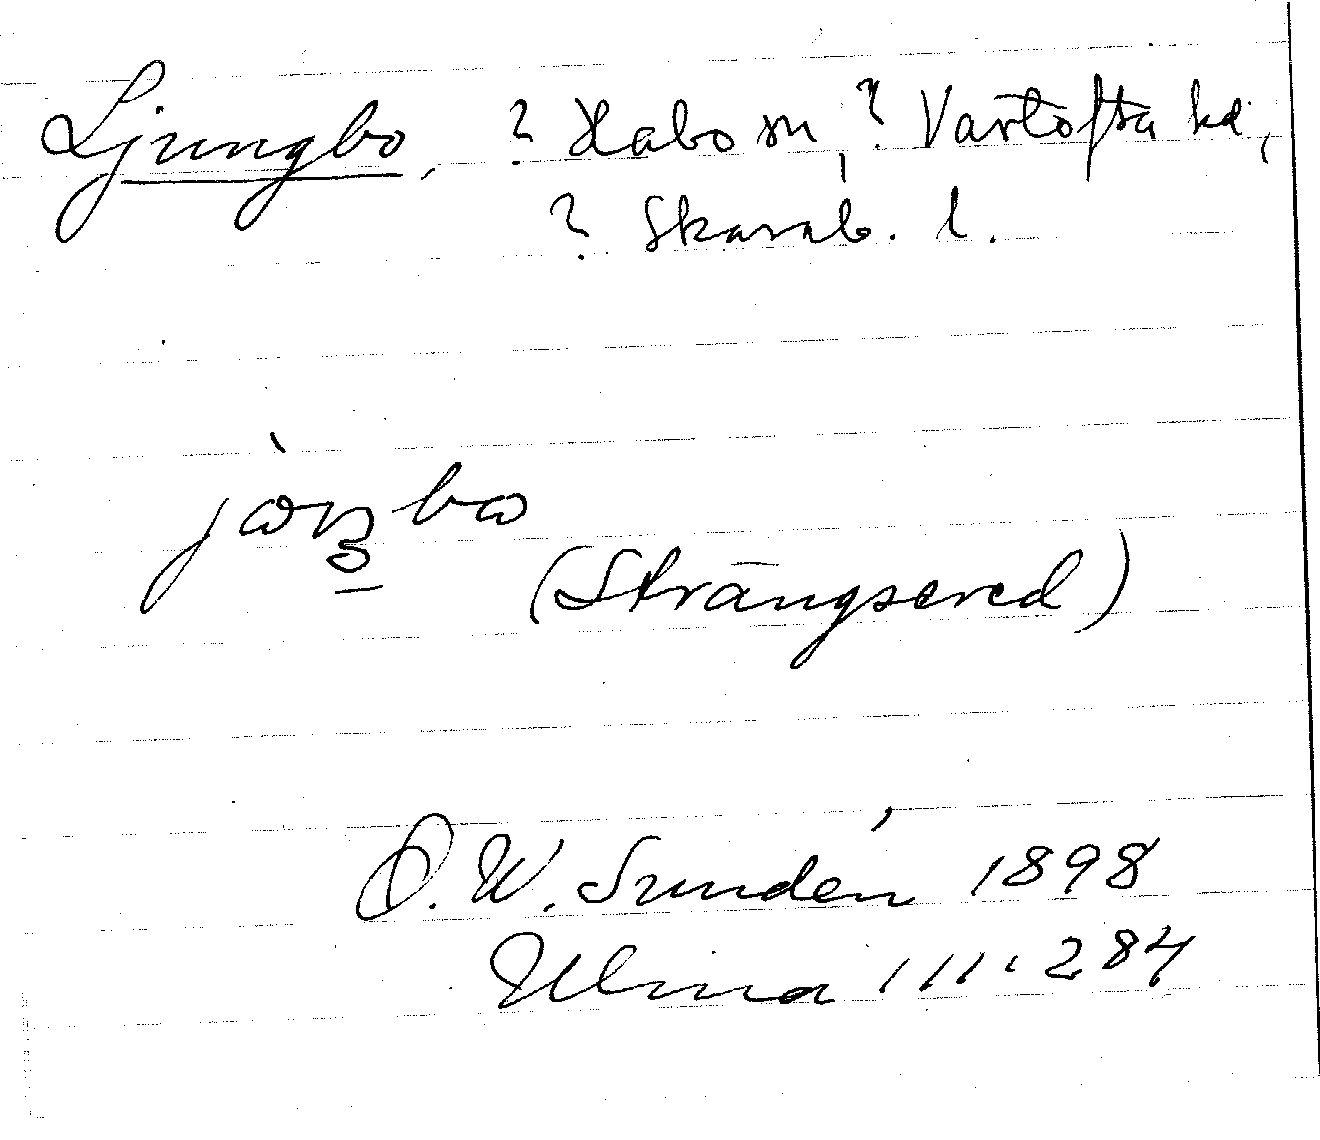 Ljungbo, ? Habo sn, ? Vartofta hd,
? Skarab. l.
(Strängsered)
D. W. Sundén 1898
Ulma 111:284